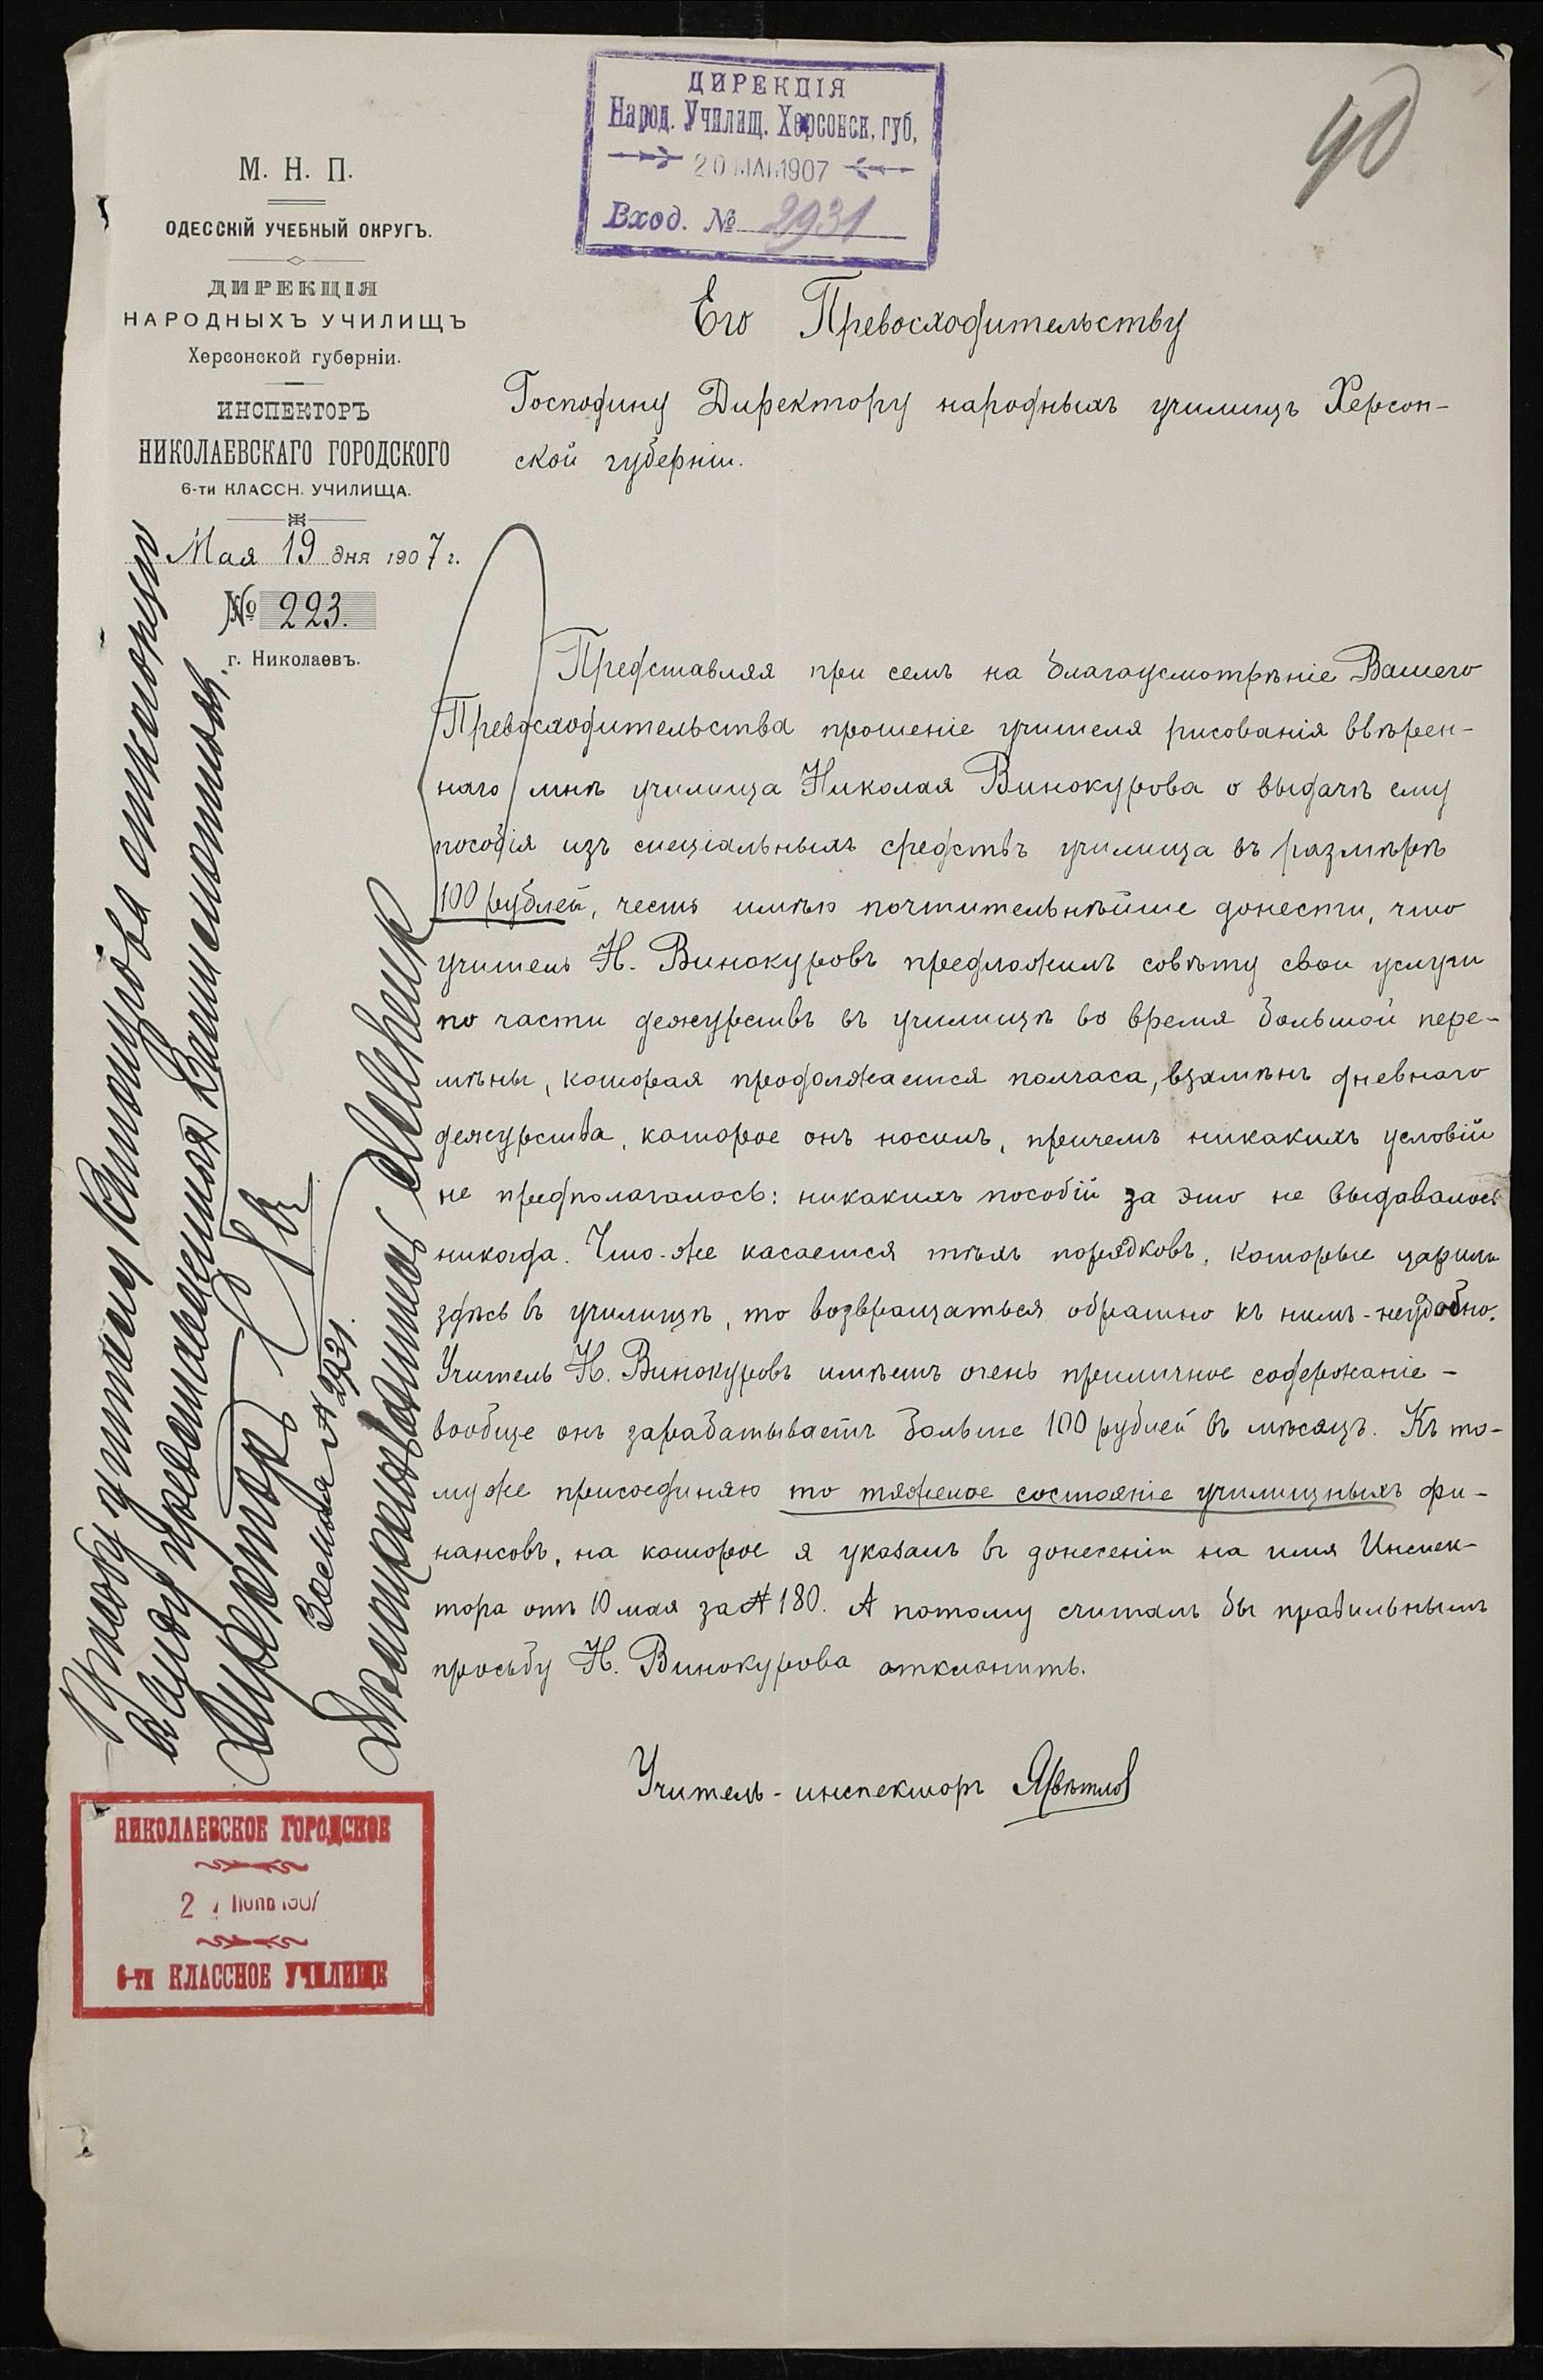 ДИРЕКЦІЯ
Народ. Училищ. Херсонск. губ.
20 МАІ 1907
Вход. № 2931
40
М. Н. П.
ОДЕССКІЙ УЧЕБНЫЙ ОКРУГЪ.
ДИРЕКЦІЯ
НАРОДНЫХЪ УЧИЛИЩЪ
Херсонской губерніи.
ИНСПЕКТОРЪ
НИКОЛАЕВСКАГО ГОРОДСКОГО
6-ти КЛАССН. УЧИЛИЩА.
Мая 19 дня 1907 г.
№ 223.
г. Николаевъ.
Его Превосходительству
Господину Директору народныхъ училищъ Херсон-
ской губерніи.
Представляя при семъ на благоусмотрѣніе Вашего
Превосходительства прошеніе учителя рисованія ввѣрен-
наго мнѣ училища Николая Винокурова о выдачѣ ему
пособія изъ спеціальныхъ средствъ училища въ размѣрѣ
100 рублей, честь имѣю почтительнѣйше донести, что
учитель Н. Винокуровъ предложилъ совѣту свои услуги
по части дежурствъ въ училищѣ во время большой пере-
мѣны, которая продолжается полчаса, взамѣнъ дневнаго
дежурства, которое онъ носилъ, причемъ никакихъ условій
не предполагалось: никакихъ пособій за это не выдавалось
никогда. Что-же касается тѣхъ порядковъ, которые царили
здѣсь въ училищѣ, то возвращаться обратно къ нимъ - неудобно.
Учитель Н. Винокуровъ имѣетъ очень приличное содержаніе -
вообще онъ зарабатываетъ больше 100 рублей въ мѣсяцъ. Къ то-
му же присоединяю то тяжелое состояніе училищныхъ фи-
нансовъ, на которое я указалъ въ донесеніи на имя Инспек-
тора отъ 10 мая за № 180. А потому считалъ бы правильнымъ
просьбу Н. Винокурова отклонить.
Учитель-инспекторъ
Просьбу учителя Винокурова отклоняю
въ виду
Директоръ
№ 2931.
НИКОЛАЕВСКОЕ ГОРОДСКОЕ
2 Іюня 1907
6-ти КЛАССНОЕ УЧИЛИЩЕ